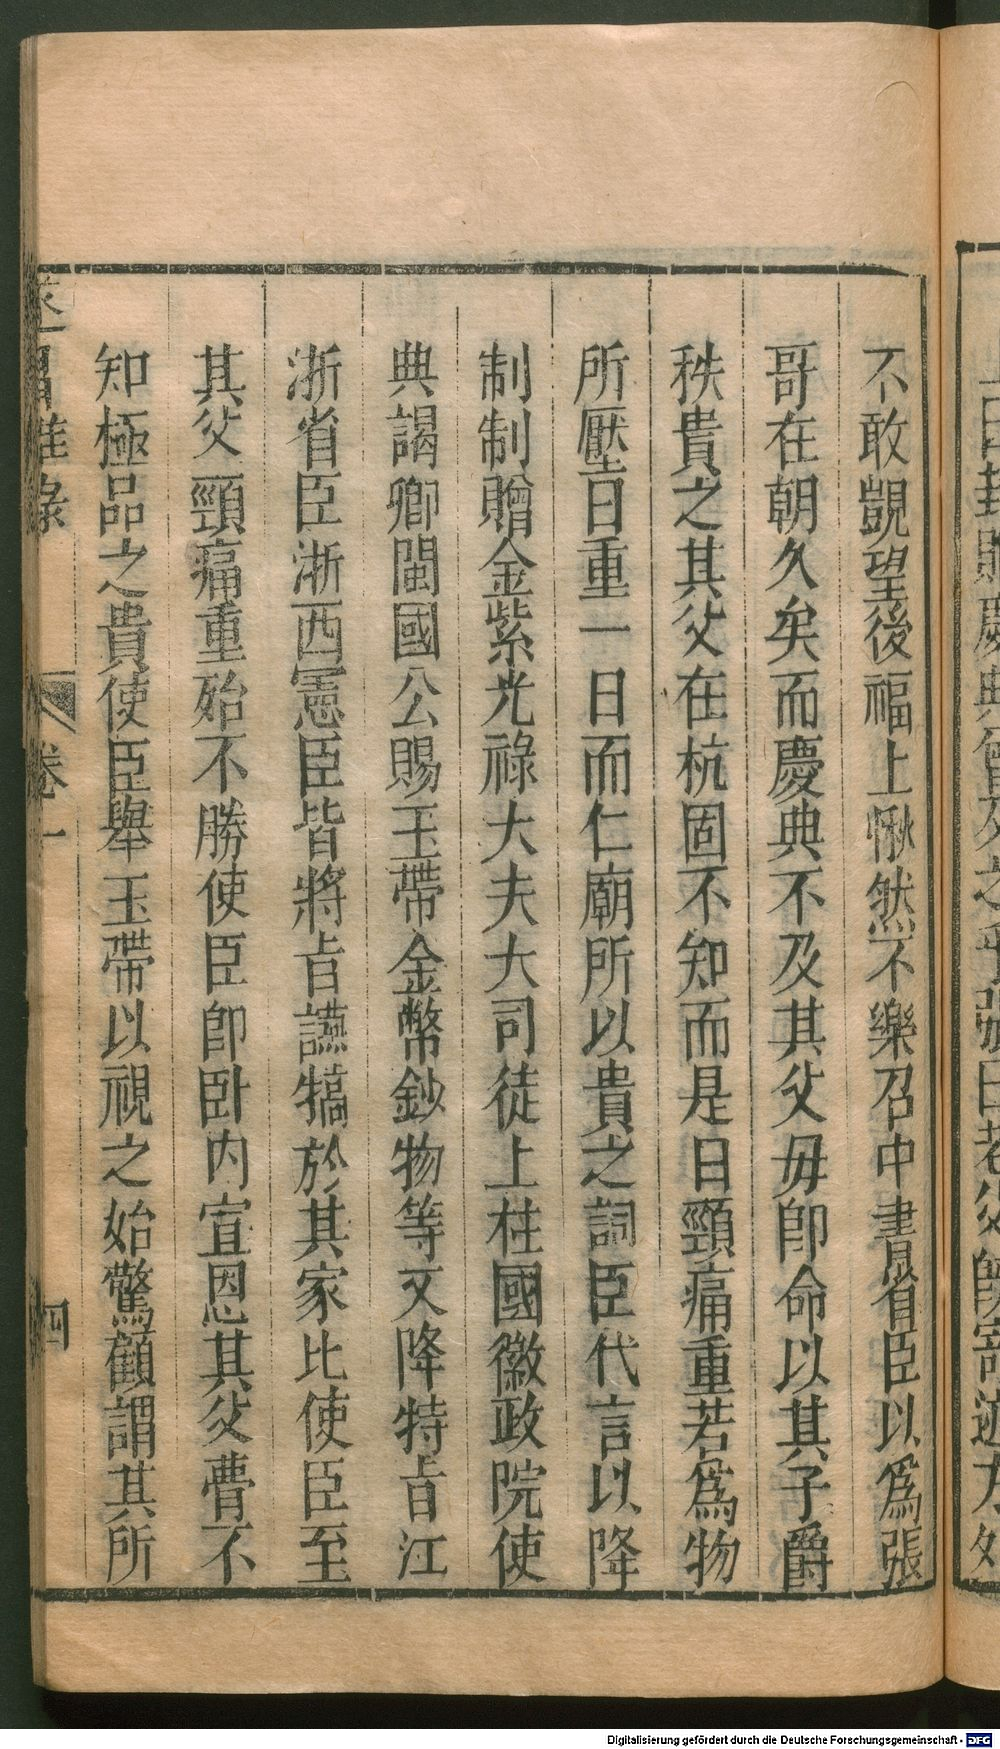 不敢覬望後福上愀然不樂召中書省臣以爲張
哥在朝久矣而慶典不及其父毋卽命以其子爵
秩貴之其父在杭固不知而是日頸痛重若爲物
所壓日重一日而仁廟所以貴之詞臣代言以降
制制贈金紫光祿大夫大司徒上柱國徽政院使
典謁卿閩國公賜玉帶金幣鈔物等又降特㫖江
浙省臣浙西憲臣皆將㫖讌犒於其家比使臣至
其父頸痛重殆不勝使臣卽卧内宣恩其父瞢不
知極品之貴使臣舉玉帶以視之始驚顧謂其所
遂昌雜錄 卷一 四
Digitalisierung gefördert durch die Deutsche Forschungsgemeinschaft - DFG